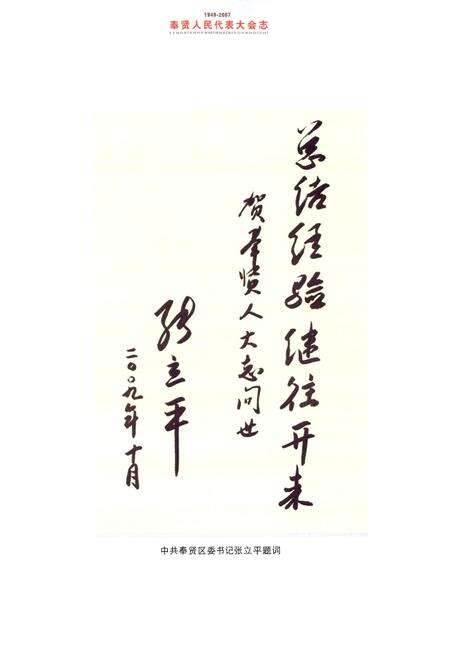 1949-2007
奉贤人民代表大会志
总结经验继往开来
贺奉贤人大志问世
张立平
二〇〇九年十月
中共奉贤区委书记张立平题词